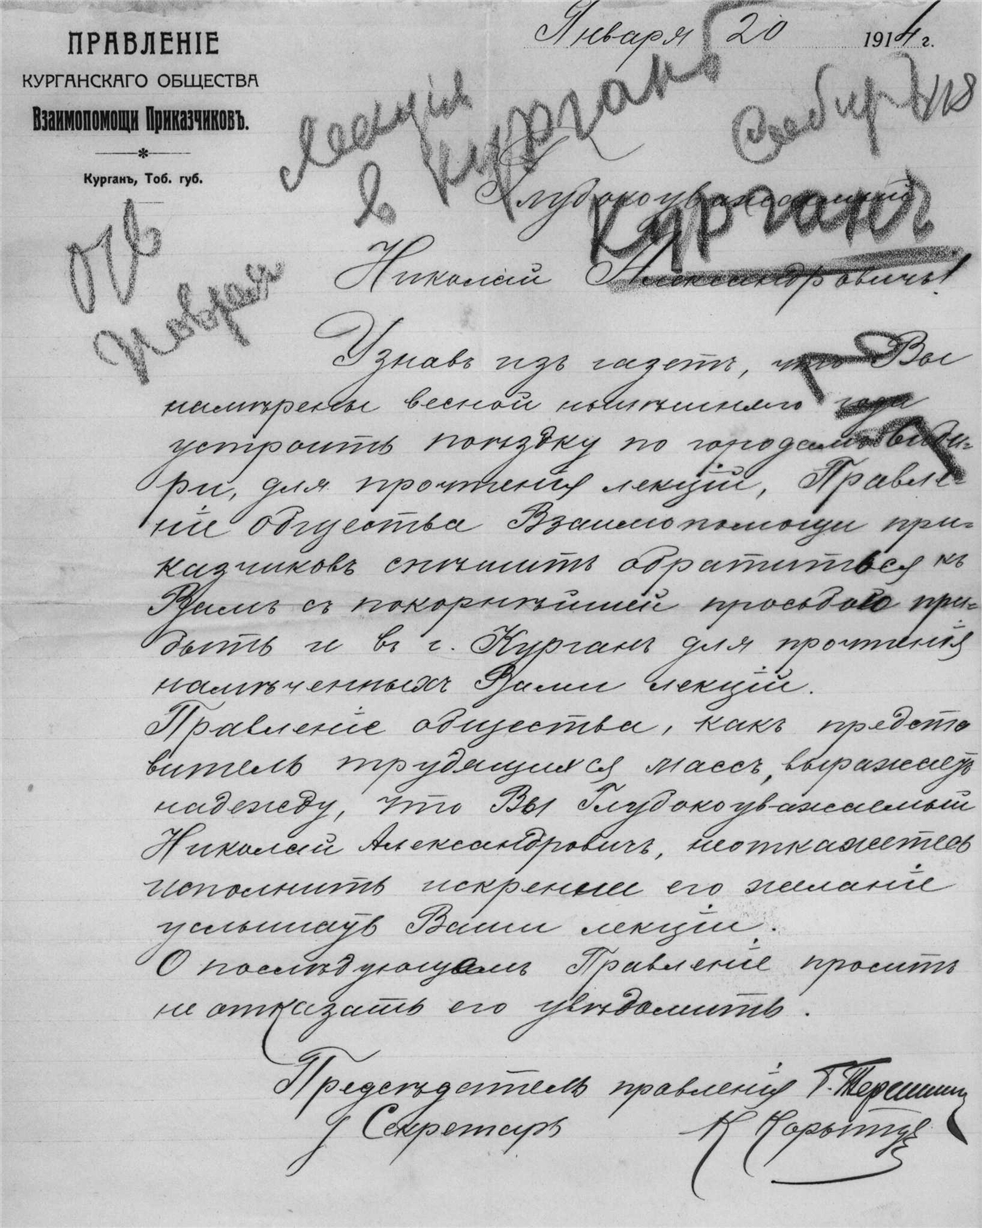 ПРАВЛЕНІЕ
КУРГАНСКАГО ОБЩЕСТВА
Взаимопомощи Приказчиковъ.
Курганъ, Тоб. губ.
Января 20 1914 г.
Лекція
в Курганѣ
Сибирь
Глубокоуважаемый
Курганъ
Николай Александровичъ!
Узнавъ изъ газетъ, что Вы
намѣрены весной нынѣшняго года
устроить поѣздку по городамъ Сиби-
ри, для прочтенія лекцій, Правле-
ніе Общества Взаимопомощи при-
казчиковъ спѣшитъ обратиться къ
Вамъ съ покорнѣйшей просьбою при-
быть и въ г. Курганъ для прочтенія
намѣченныхъ Вами лекцій.
Правленіе общества, какъ предста
витель трудящихся массъ, выражаетъ
надежду, что Вы Глубокоуважаемый
Николай Александровичъ, неоткажетесь
исполнить искренне его желаніе
услышать Ваши лекціи.
О послѣдующемъ Правленіе проситъ
не отказать его увѣдомить.
Предсѣдатель правленія Г. Терешин
Секретарь К Корытов